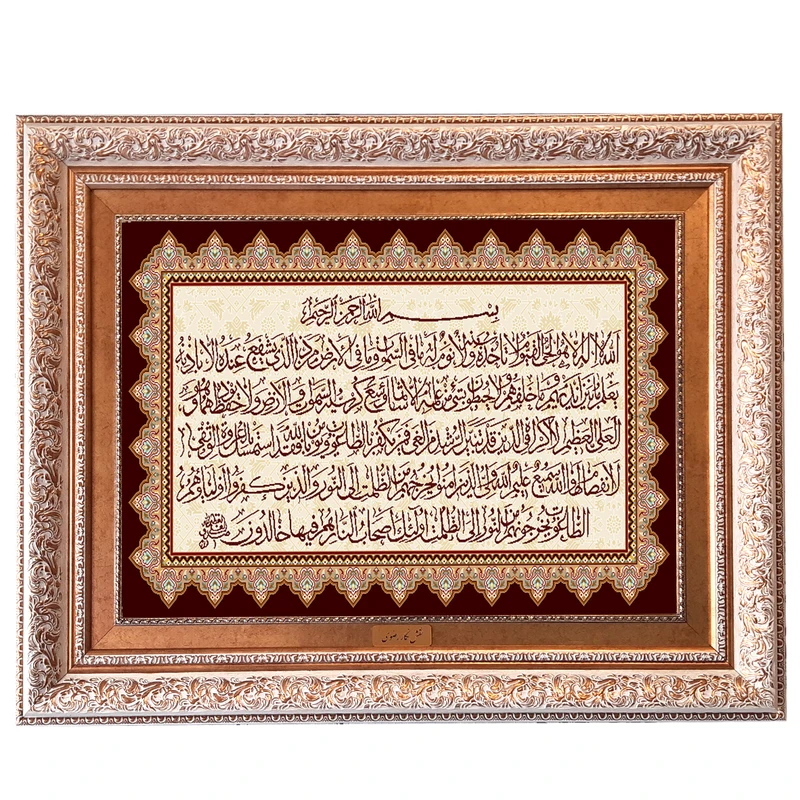 بسم الله الرحمن الرحیم
الله لا اله الا هو الحی القیوم لا تاخذه سنة ولا نوم له ما فی السموات وما فی الارض من ذا الذی یشفع عنده الا باذنه
یعلم ما بین ایدیهم وما خلفهم ولا یحیطون بشیء من علمه الا بما شاء وسع کرسیه السموات والارض ولا یؤده حفظهما وهو
العلی العظیم لا اکراه فی الدین قد تبین الرشد من الغی فمن یکفر بالطاغوت ویؤمن بالله فقد استمسک بالعروة الوثقی
لا انفصام لها والله سمیع علیم الله ولی الذین امنوا یخرجهم من الظلمات الی النور والذین کفروا اولیاؤهم
الطاغوت یخرجونهم من النور الی الظلمات اولئک اصحاب النار هم فیها خالدون
نقش نگار رضوی